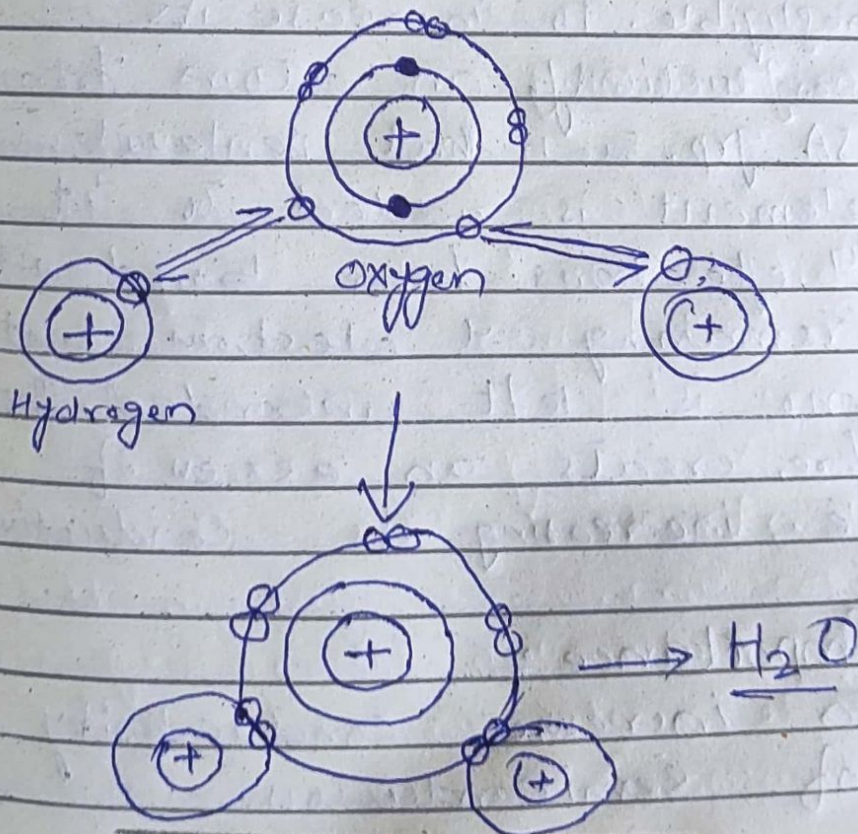 +
Oxygen
+
+
Hydrogen
+
→ H₂O
+
+